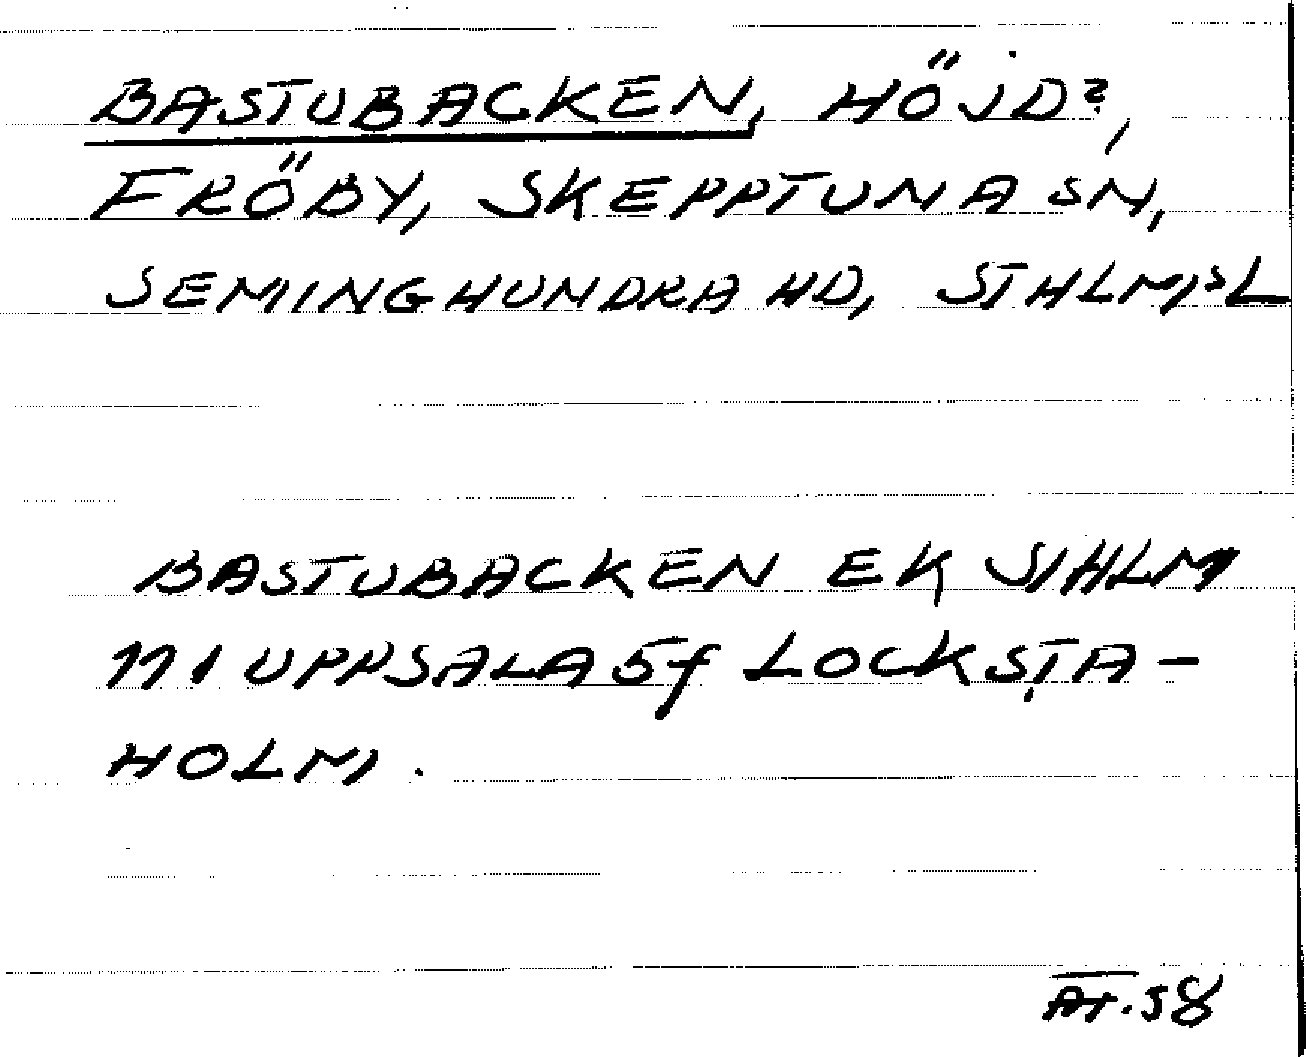 BASTUBACKEN, HÖJD?,
FRÖBY, SKEPPTUNA SN,
SEMINGHUNDRA HD, STHLMSL
BASTUBACKEN EK STHLM
111 UPPSALA 5f LOCKSTA-
HOLM.
AT.58